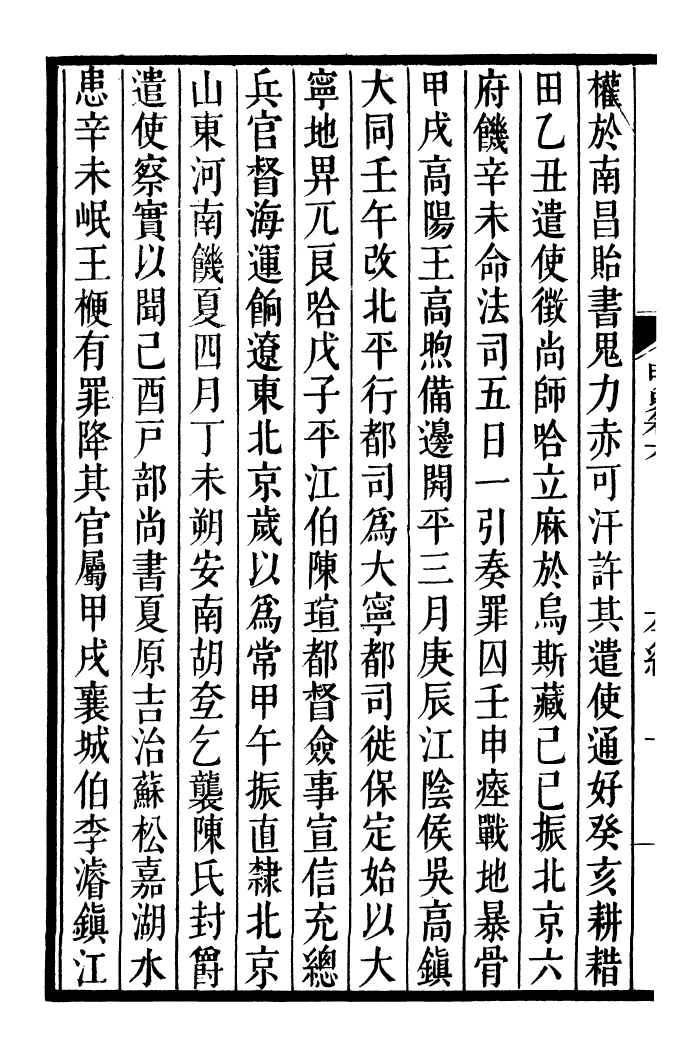 權於南昌貽書鬼力赤可汗許其遣使通好癸亥耕耤
田乙丑遣使徵尚師哈立麻於烏斯藏己巳振北京六
府饑辛未命法司五日一引奏罪囚壬申瘞戰地暴骨
甲戌高陽王高煦備邊開平三月庚辰江陰侯吳高鎮
大同壬午改北平行都司為大寧都司徙保定始以大
寧地畀兀良哈戊子平江伯陳瑄都督僉事宣信充總
兵官督海運餉遼東北京歲以為常甲午振直隸北京
山東河南饑夏四月丁未朔安南胡𡗨乞襲陳氏封爵
遣使察實以聞己酉戶部尚書夏原吉治蘇松嘉湖水
患辛未岷王楩有罪降其官屬甲戌襄城伯李濬鎮江